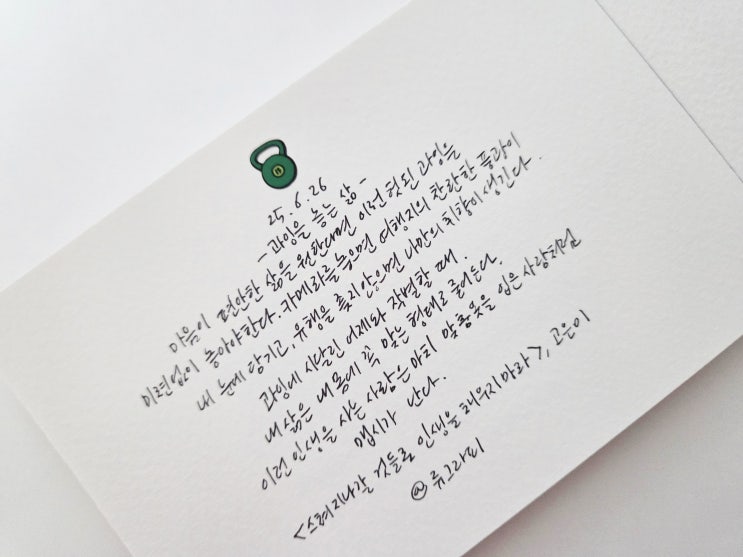 25. 6. 26
- 과잉을 놓는 삶 -
마음이 편안한 삶을 원한다면 이런 헛된 과잉을
미련없이 놓아야한다. 카메라를 놓으면 여행지의 찬란한 풍광이
내 눈에 담기고, 유행을 좇지 않으면 나만의 취향이 생긴다.
과잉에 시달린 어제와 작별할 때.
내 삶은 내 몸에 꼭 맞는 형태로 줄어든다.
이런 인생을 사는 사람은 마치 맞춤옷을 입은 사람처럼
맵시가 난다.
<스쳐지나갈 것들로 인생을 채우지마라>, 고은미
@ 류그라피